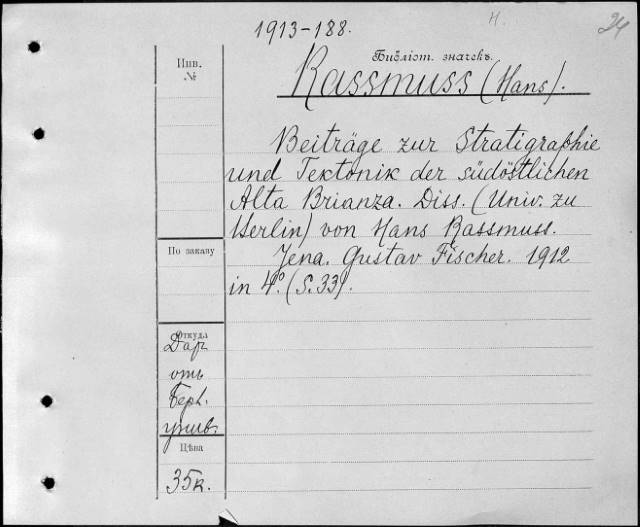 1913-188.
H.
24
Инв.
№
Библіот. значекъ.
Rassmuss (Hans).
Beiträge zur Stratigraphie
und Tektonik der südöstlichen
Alta Brianza. Diss. (Univ. zu
Berlin) von Hans Rassmuss.
Jena. Gustav Fischer. 1912
in 4º. (S. 33).
По заказу
Откуда
Дар
отъ
Берл.
унив.
Цѣна
35к.